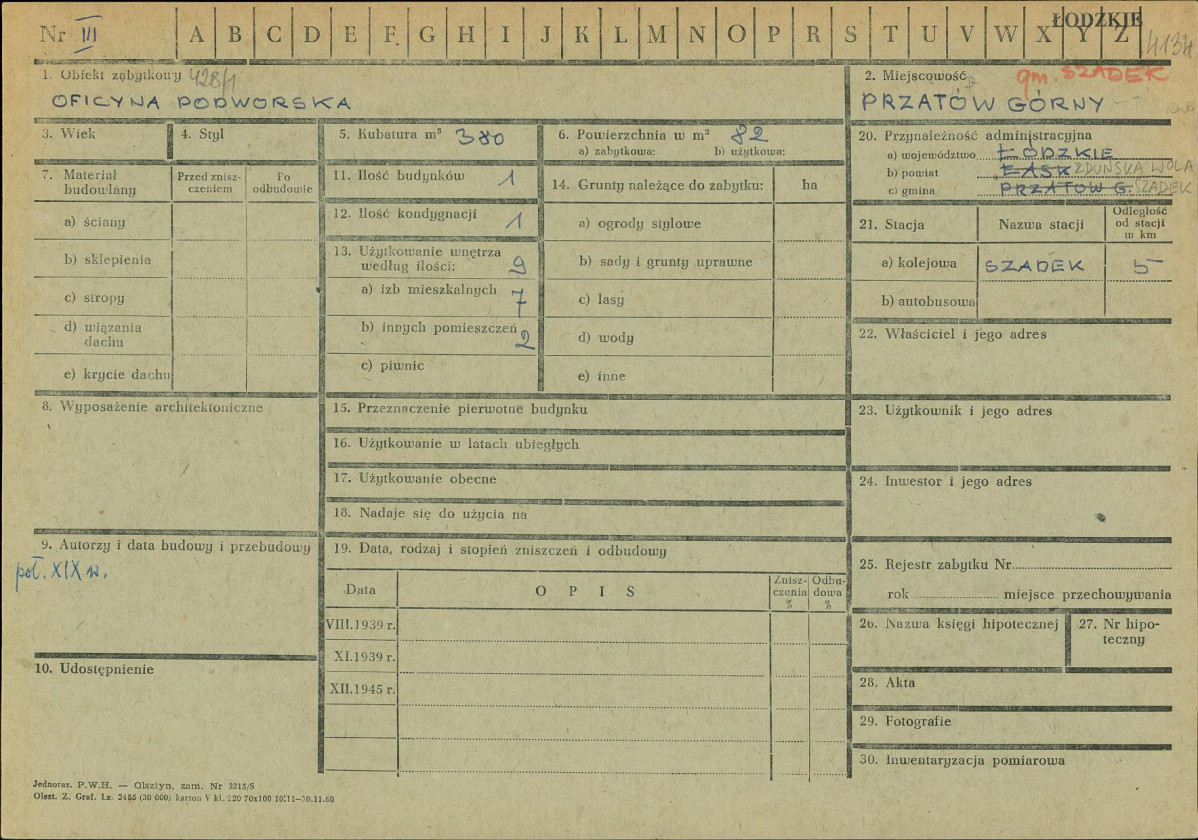 Nr III A B C D E F G H I J K L M N O P R S T U V W X Y Z ŁODZKIE
4134
1. Obiekt zabytkowy 428/1
OFICYNA PODWORSKA
2. Miejscowość gm. SZADEK
PRZATÓW GÓRNY
3. Wiek
4. Styl
5. Kubatura m³ 380
6. Powierzchnia w m² 82
a) zabytkowa: b) użytkowa:
7. Materiał budowlany
Przed zniszczeniem
Po odbudowie
a) ściany
b) sklepienia
c) stropy
d) wiązania dachu
e) krycie dachu
11. Ilość budynków 1
12. Ilość kondygnacji 1
13. Użytkowanie wnętrza
według ilości: 9
a) izb mieszkalnych 7
b) innych pomieszczeń 2
c) piwnic
14. Grunty należące do zabytku: ha
a) ogrody stylowe
b) sady i grunty uprawne
c) lasy
d) wody
e) inne
20. Przynależność administracyjna
a) województwo ŁÓDZKIE
b) powiat ŁASK ZDUŃSKA WOLA
c) gmina PRZATÓW G. SZADEK
21. Stacja Nazwa stacji Odległość od stacji w km
a) kolejowa SZADEK 5
b) autobusowa
22. Właściciel i jego adres
8. Wyposażenie architektoniczne
15. Przeznaczenie pierwotne budynku
16. Użytkowanie w latach ubiegłych
17. Użytkowanie obecne
18. Nadaje się do użycia na
23. Użytkownik i jego adres
24. Inwestor i jego adres
9. Autorzy i data budowy i przebudowy
poł. XIX w.
19. Data, rodzaj i stopień zniszczeń i odbudowy
Data O P I S Zniszczenia % Odbudowa %
VIII.1939 r.
XI.1939 r.
XII.1945 r.
10. Udostępnienie
25. Rejestr zabytku Nr
rok miejsce przechowywania
26. Nazwa księgi hipotecznej
27. Nr hipoteczny
28. Akta
29. Fotografie
30. Inwentaryzacja pomiarowa
Jednoraz. P.W.H. — Olsztyn, zam. Nr 3215/S
Olszt. Z. Graf. Lz. 2485 (30 000) karton V kl. 220 70x100 10.11—30.11.60